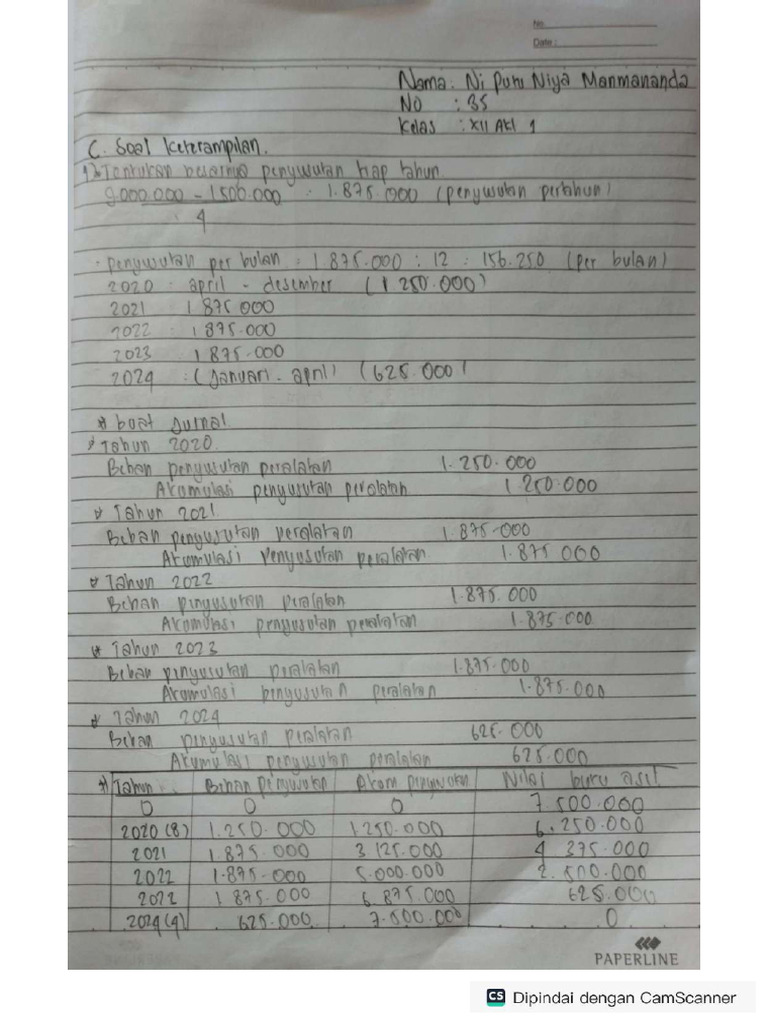 No.
Date :
Nama : Ni Putu Niya Manmananda
No : 35
Kelas : XII Akl 1
C. Soal keterampilan.
1. Tentukan besarnya penyusutan tiap tahun
9.000.000 - 1.500.000 = 1.875.000 (penyusutan pertahun)
4
· Penyusutan per bulan = 1.875.000 : 12 = 156.250 (per bulan)
2020 : april - desember (1.250.000)
2021 : 1.875.000
2022 : 1.875.000
2023 : 1.875.000
2024 : (Januari - april) (625.000)
* buat Jurnal
* Tahun 2020
Beban penyusutan peralatan 1.250.000
Akumulasi penyusutan peralatan 1.250.000
* Tahun 2021
Beban penyusutan peralatan 1.875.000
Akumulasi penyusutan peralatan 1.875.000
* Tahun 2022
Beban penyusutan peralatan 1.875.000
Akumulasi penyusutan peralatan 1.875.000
* Tahun 2023
Beban penyusutan peralatan 1.875.000
Akumulasi penyusutan peralatan 1.875.000
* Tahun 2024
Beban penyusutan peralatan 625.000
Akumulasi penyusutan peralatan 625.000
*) Tahun Beban Penyusutan Akum penyusutan Nilai buku asil
0 0 0 7.500.000
2020 (8) 1.250.000 1.250.000 6.250.000
2021 1.875.000 3.125.000 4.375.000
2022 1.875.000 5.000.000 2.500.000
2022 1.875.000 6.875.000 625.000
2024 (4) 625.000 7.500.000 0
PAPERLINE
CS Dipindai dengan CamScanner